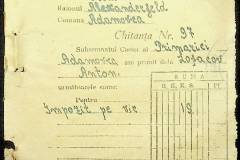 Raionul Alexanderfeld
Comuna Adamovca
Chitanța Nr. 97
Subsemnatul Casier al Primăriei
Adamovca am primit dela
Anton
următoarele sume:
Pentru
SUMA
Impozit pe vie 19